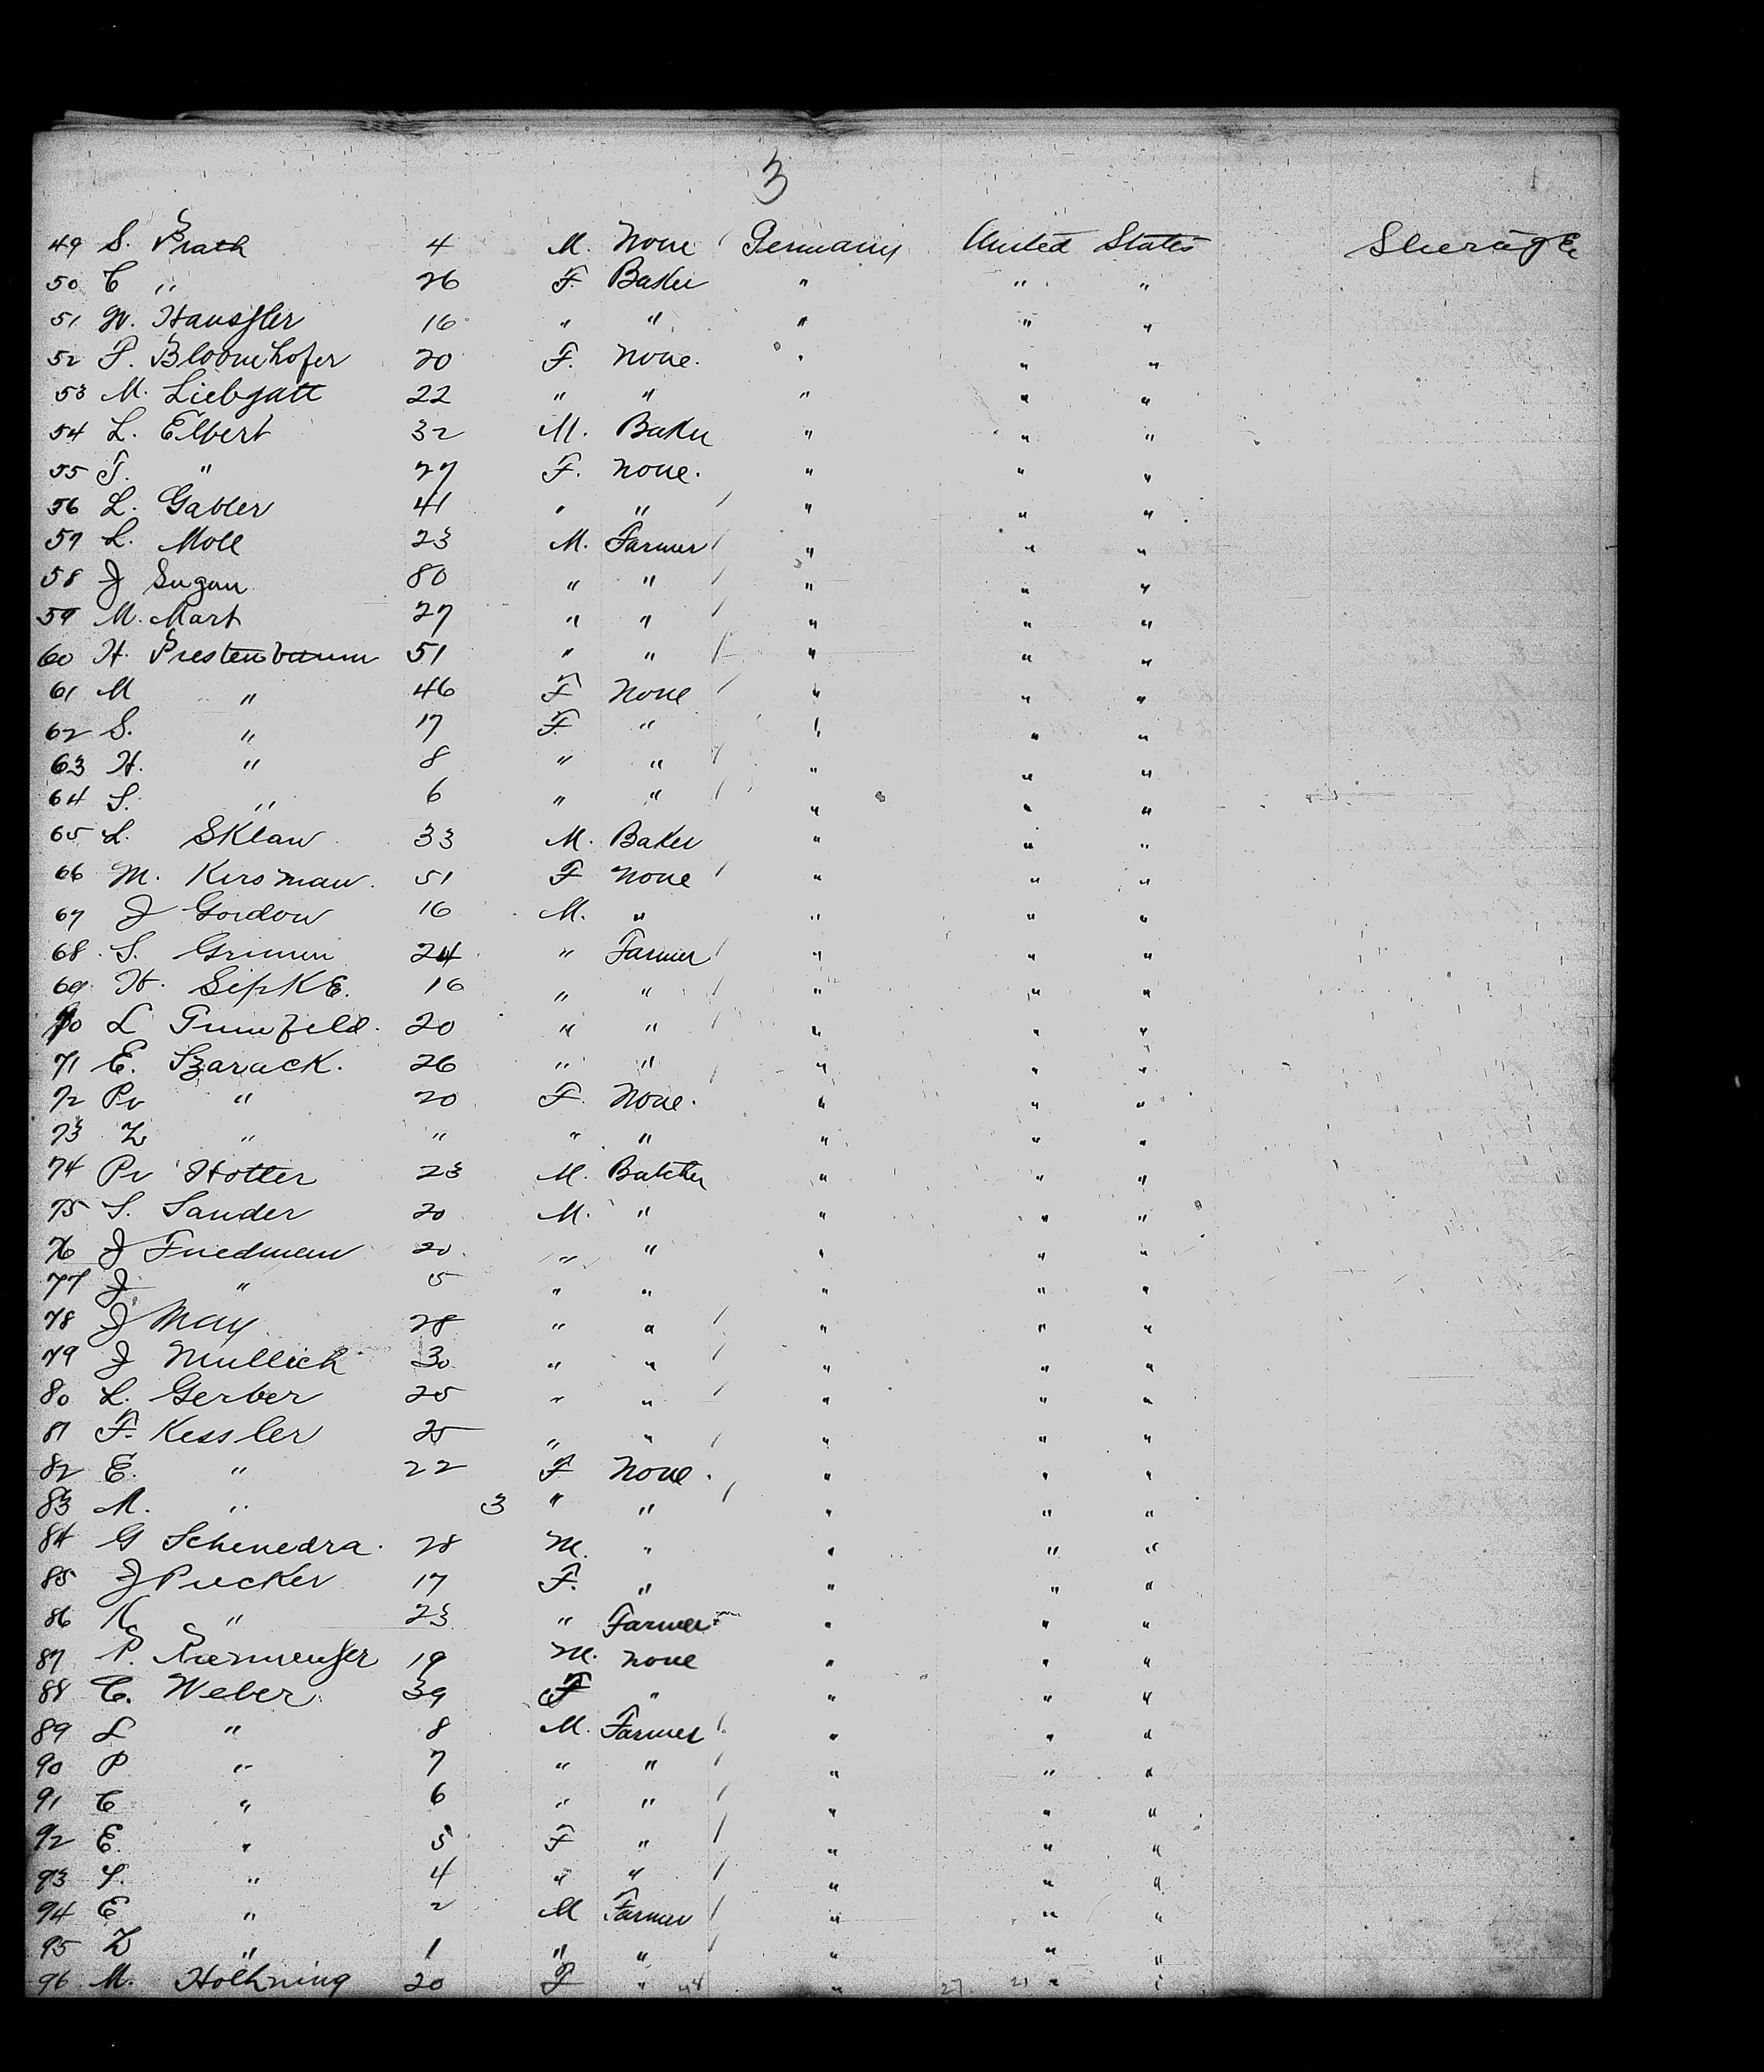 3
49 S. Prath 4 M. None Germany United States Steerage
50 C " 26 F. Baker " " "
51 W. Haussler 16 " " " " "
52 P. Bloomhofer 20 F. None. " " "
53 M. Liebgatt 22 " " " " "
54 L. Elbert 32 M. Baker " " "
55 T. " 27 F. None. " " "
56 L. Gabler 41 " " " " "
57 L. Moll 23 M. Farmer " " "
58 J Sugan 80 " " " " "
59 M. Mart 27 " " " " "
60 H. Prestenbaum 51 " " " " "
61 M " 46 F None " " "
62 S. " 17 F. " " " "
63 H. " 8 " " " " "
64 S. " 6 " " " " "
65 L. SKlaw 33 M. Baker " " "
66 M. Kirsman. 51 F None " " "
67 J Gordon 16 M. " " " "
68 S. Grimm 24 " Farmer " " "
69 H. SipKE. 16 " " " " "
70 L 20 " " " " "
71 E. Szarack. 26 " " " " "
72 Pv " 20 F. None. " " "
73 Z " " " " " " "
74 Pv Hotter 23 M. Butcher " " "
75 S. Sander 20 M. " " " "
76 J Friedman 20 " " " " "
77 J " 5 " " " " "
78 J May 28 " " " " "
79 J Mullich 30 " " " " "
80 L. Gerber 25 " " " " "
81 F. Kessler 25 " " " " "
82 E. " 22 F None. " " "
83 M. " 3 " " " " "
84 G Schenedra. 28 M. " " " "
85 J Pucker 17 F. " " " "
86 K " 23 " Farmer " " "
87 P. 19 M. None " " "
88 C. Weber 39 F " " " "
89 L " 8 M. Farmer " " "
90 P " 7 " " " " "
91 C " 6 " " " " "
92 E. " 5 F " " " "
93 S. " 4 " " " " "
94 E " 2 M Farmer " " "
95 Z " 1 " " " " "
96 M. Holhning 20 F " 48 " 27 21 " "